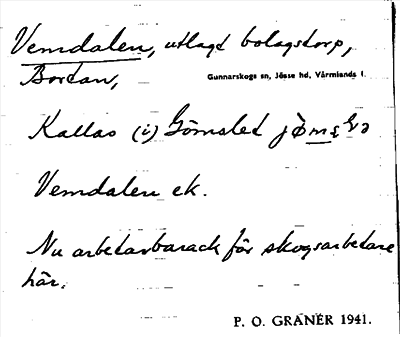 Vemdalen, utlagt bolagstorp,
Bortan,
Gunnarskogs sn, Jösse hd, Värmlands l.
Kallas (i) Gömsled
Vemdalen ek.
Nu arbetarbarack för skogsarbetare
här.
P. O. GRANÉR 1941.